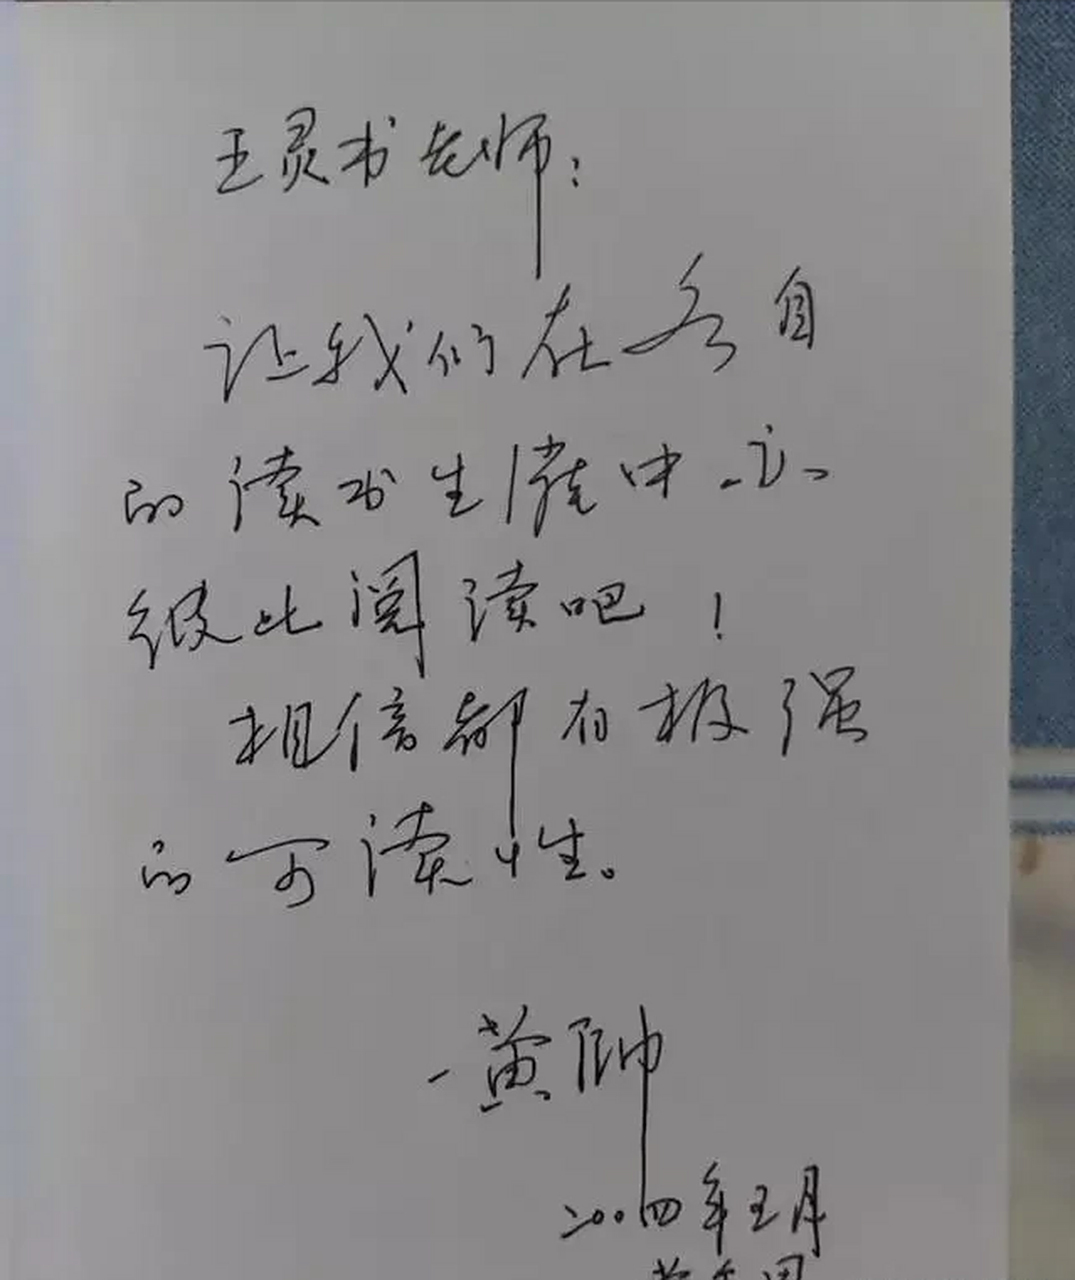 王灵书老师:
让我们在各自
的读书生涯中.让
彼此阅读吧!
相信都有极强
的可读性。
黄帅
二〇〇四年五月